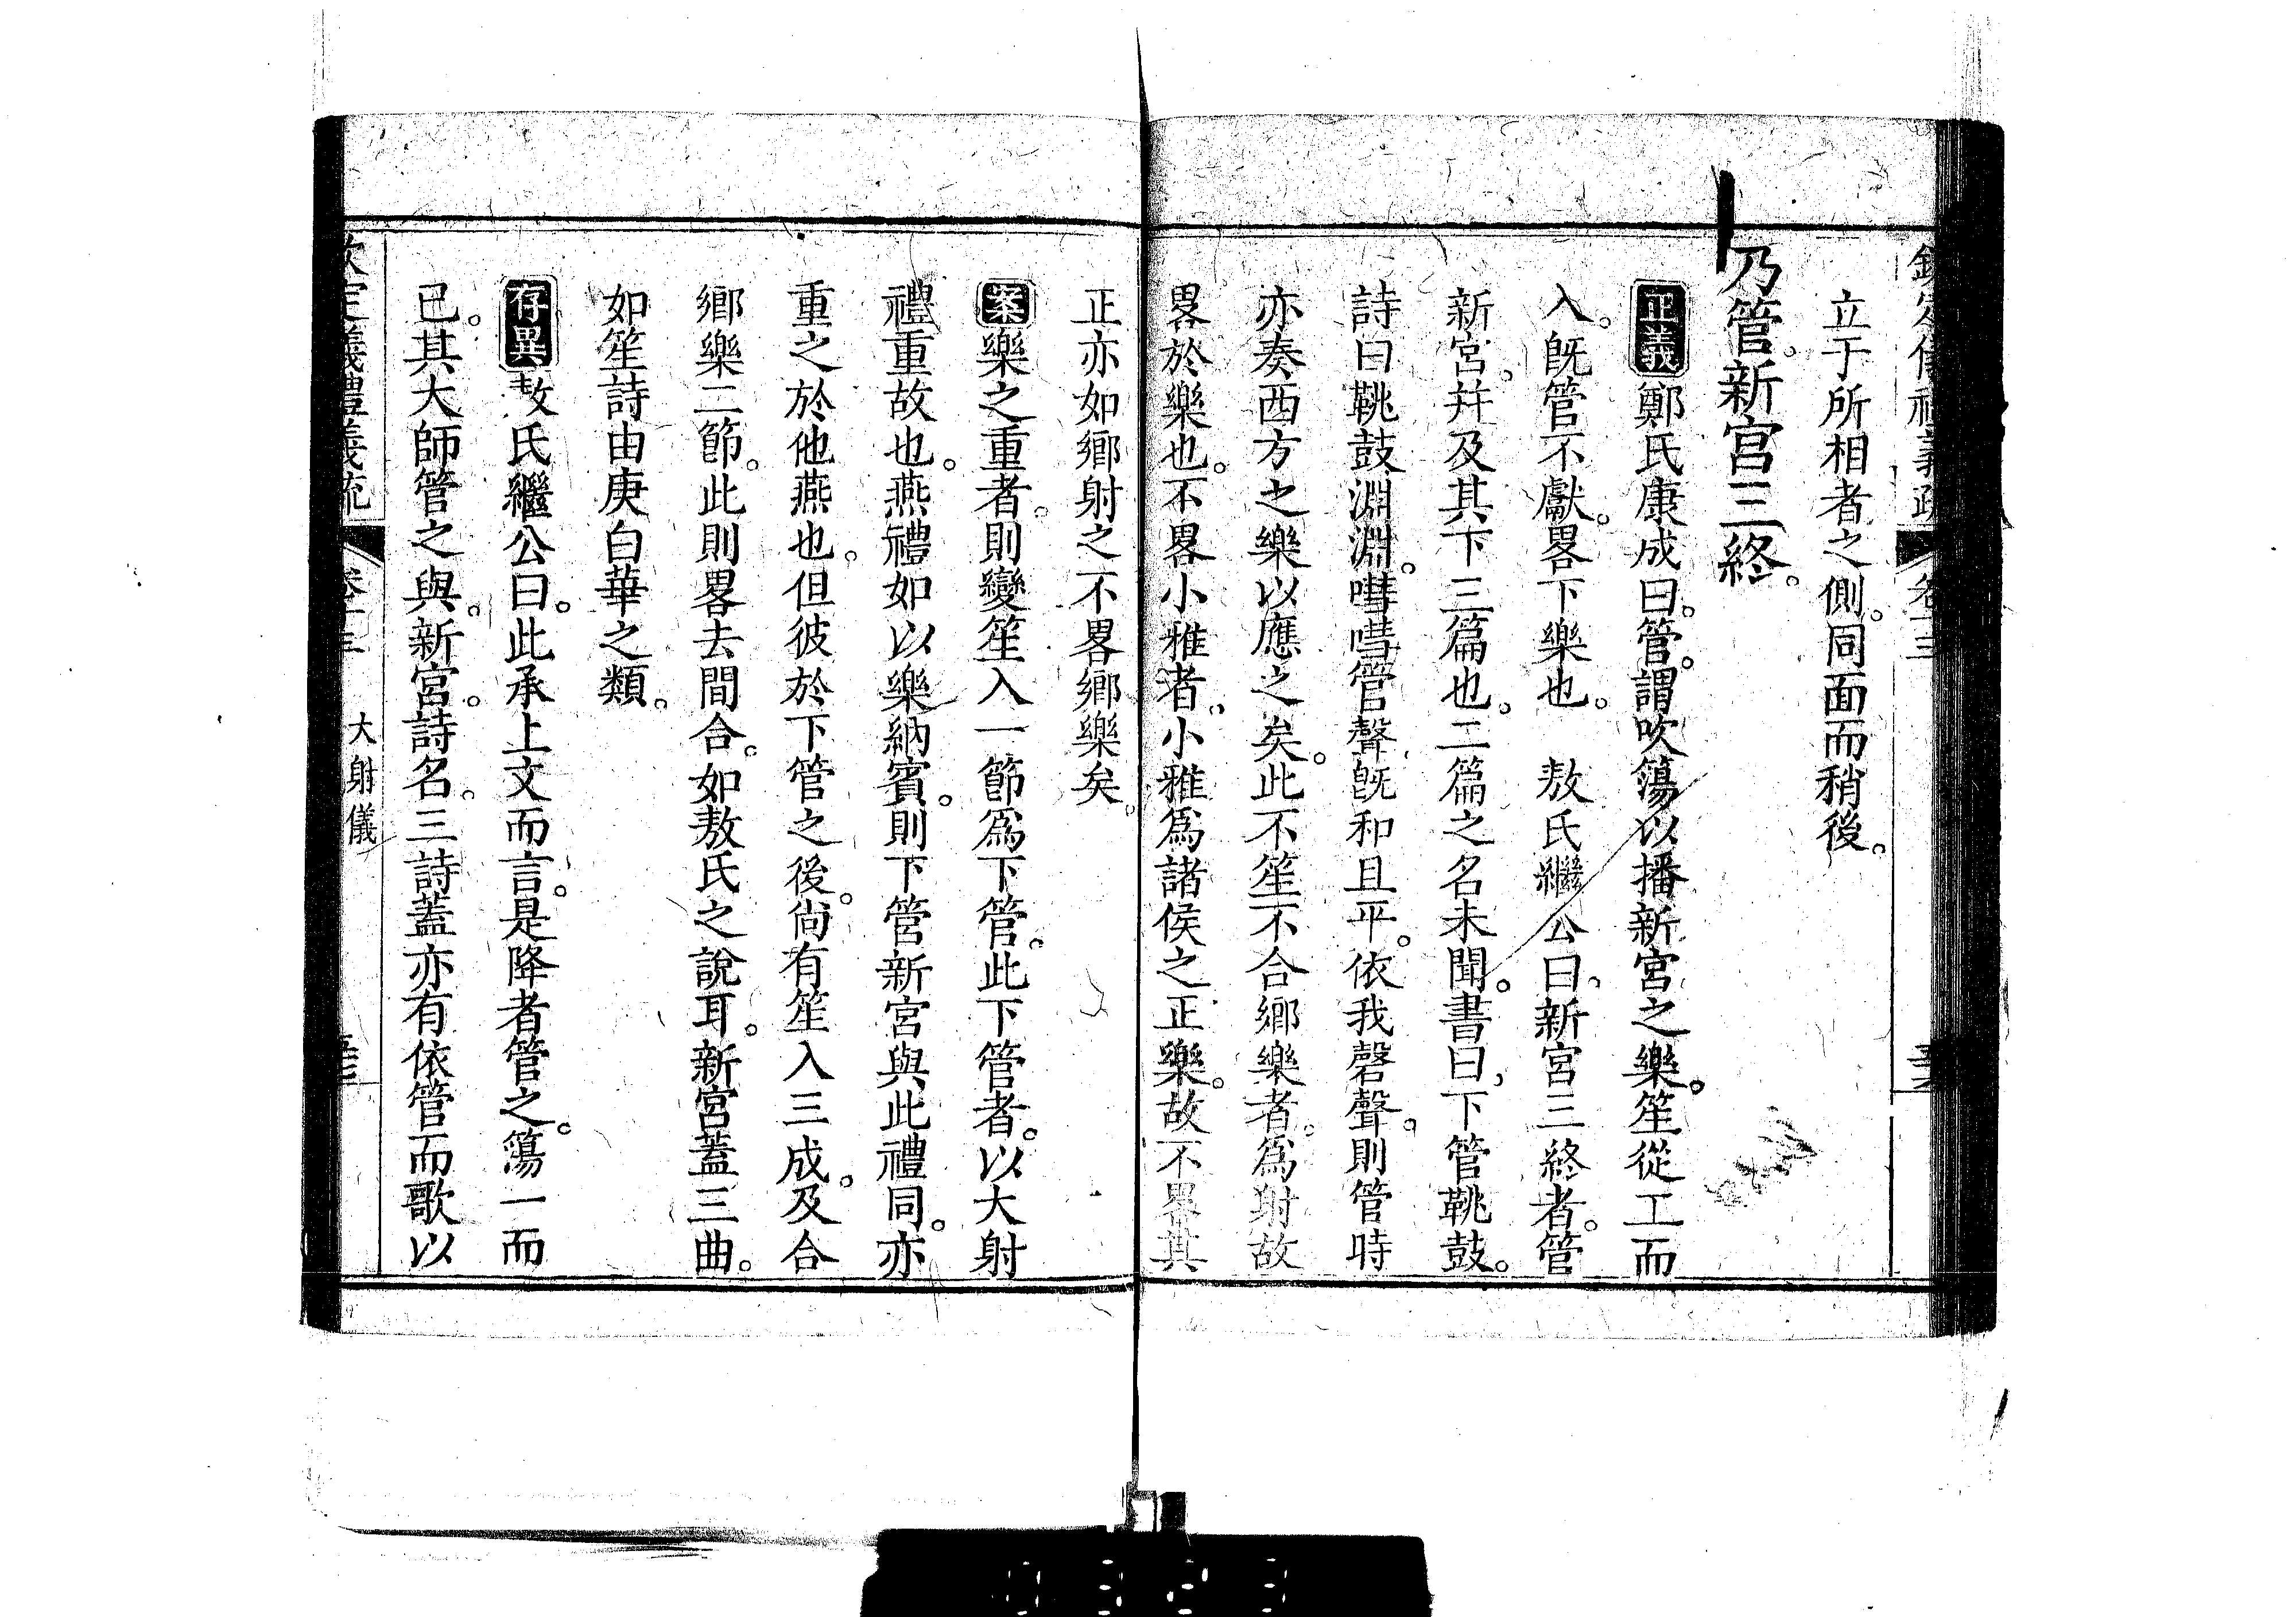 欽定儀禮義疏 卷十三
立于所相者之側。同面而稍後。
乃管新宮三終。
正義 鄭氏康成曰。管。謂吹簜以播新宮之樂。笙從工而
入。旣管不獻。畧下樂也。 敖氏繼公曰、新宮三終者。管
新宮。幷及其下三篇也。二篇之名未聞。書曰、下管鞉鼓。
詩曰鞉鼓淵淵。嘒嘒管聲、旣和且平。依我磬聲。則管時
亦奏西方之樂以應之矣。此不笙不合鄉樂者。爲射故
畧於樂也。不畧小雅者、小雅爲諸侯之正樂。故不畧其
正亦如鄉射之不畧鄉樂矣。
案 樂之重者。則變笙入一節爲下管。此下管者。以大射
禮重故也。燕禮如以樂納賓。則下管新宮與此禮同。亦
重之於他燕也。但彼於下管之後。尙有笙入三成。及合
鄉樂二節。此則畧去間合。如敖氏之說耳。新宮蓋三曲。
如笙詩由庚白華之類。
存異 敖氏繼公曰。此承上文而言。是降者管之。簜一而
已。其大師管之與。新宮。詩名。三詩蓋亦有依管而歌以
欽定儀禮義疏 卷十三 大射儀